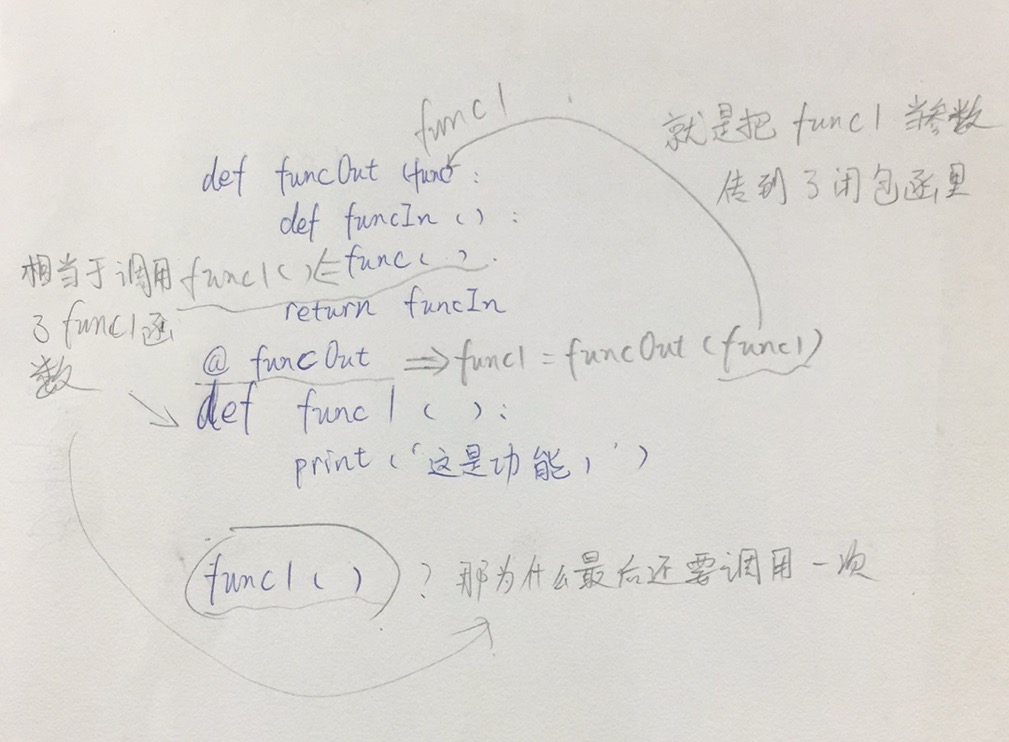 func1
就是把 func1 当参数
传到了闭包函里
def funcOut (func :
def funcIn () :
相当于调用 func1() ⇐ func ( ).
了 func1函
数
return funcIn
@ funcOut ⇒ func1 = funcOut (func1)
def func1 ( ):
print ('这是功能1')
func1 ( ) ? 那为什么最后还要调用一次